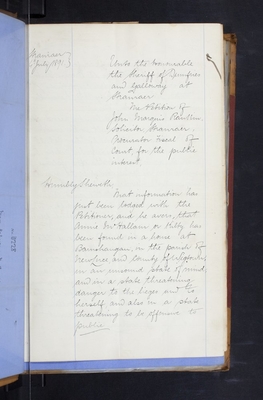 Stranraer
July 1891
Unto the Honourable
the Sheriff of Dumfries
and Galloway at
Stranraer
The Petition of
John Marquis Rankin
Solicitor Stranraer
Procurator Fiscal of
Court for the public
interest
Humbly Sheweth
That information has
just been lodged with the
Petitioner, and he avers, that
Annie McCallum or Kitty has
been found in a house at
in the parish of
New Luce and County of Wigtown
in an unsound state of mind
and in a state threatening
danger to the lieges and to
herself and also in a state
threatening to be offensive to
public